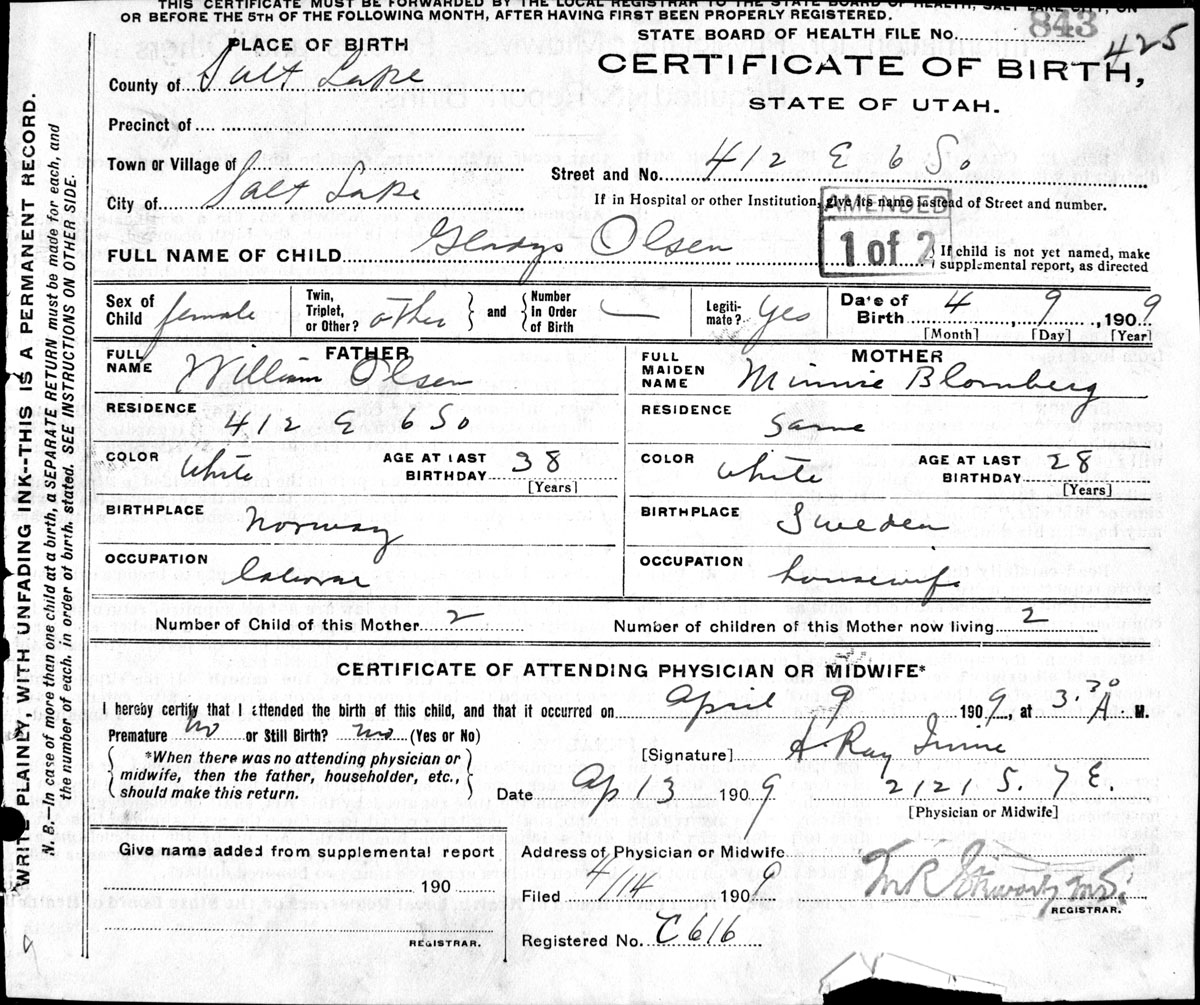 THIS CERTIFICATE MUST BE FORWARDED BY THE LOCAL REGISTRAR TO THE STATE BOARD OF HEALTH, SALT LAKE CITY, ON
OR BEFORE THE 5TH OF THE FOLLOWING MONTH, AFTER HAVING FIRST BEEN PROPERLY REGISTERED.
STATE BOARD OF HEALTH FILE No. 843
425
CERTIFICATE OF BIRTH,
STATE OF UTAH.
PLACE OF BIRTH
County of Salt Lake
Precinct of
Town or Village of
City of Salt Lake
Street and No. 412 E 6 S.
If in Hospital or other Institution, give its name instead of Street and number.
AMENDED
1 of 2
FULL NAME OF CHILD Gladys Olsen
If child is not yet named, make
supplemental report, as directed
Sex of Child female
Twin, Triplet, or Other? other
and Number In Order of Birth
Legiti-mate? Yes
Date of Birth 4, 9, 1909
[Month] [Day] [Year]
FATHER
FULL NAME William Olsen
RESIDENCE 412 E 6 SO
COLOR White
AGE AT LAST BIRTHDAY 38
[Years]
BIRTHPLACE Norway
OCCUPATION
MOTHER
FULL MAIDEN NAME Minnie Blomberg
RESIDENCE Same
COLOR White
AGE AT LAST BIRTHDAY 28
[Years]
BIRTHPLACE Sweden
OCCUPATION housewife
Number of Child of this Mother 2
Number of children of this Mother now living 2
CERTIFICATE OF ATTENDING PHYSICIAN OR MIDWIFE*
I hereby certify that I attended the birth of this child, and that it occurred on April 9 1909, at 3.30 A M.
Premature no or Still Birth? no (Yes or No)
*When there was no attending physician or
midwife, then the father, householder, etc.,
should make this return.
[Signature] A Ray Irvine
Date Ap 13 1909 2121 S. 7 E.
[Physician or Midwife]
Give name added from supplemental report
190
REGISTRAR.
Address of Physician or Midwife
Filed 4/14 1909
REGISTRAR.
Registered No. C616
WRITE PLAINLY, WITH UNFADING INK--THIS IS A PERMANENT RECORD.
N. B.—In case of more than one child at a birth, a SEPARATE RETURN must be made for each, and
the number of each, in order of birth, stated. SEE INSTRUCTIONS ON OTHER SIDE.